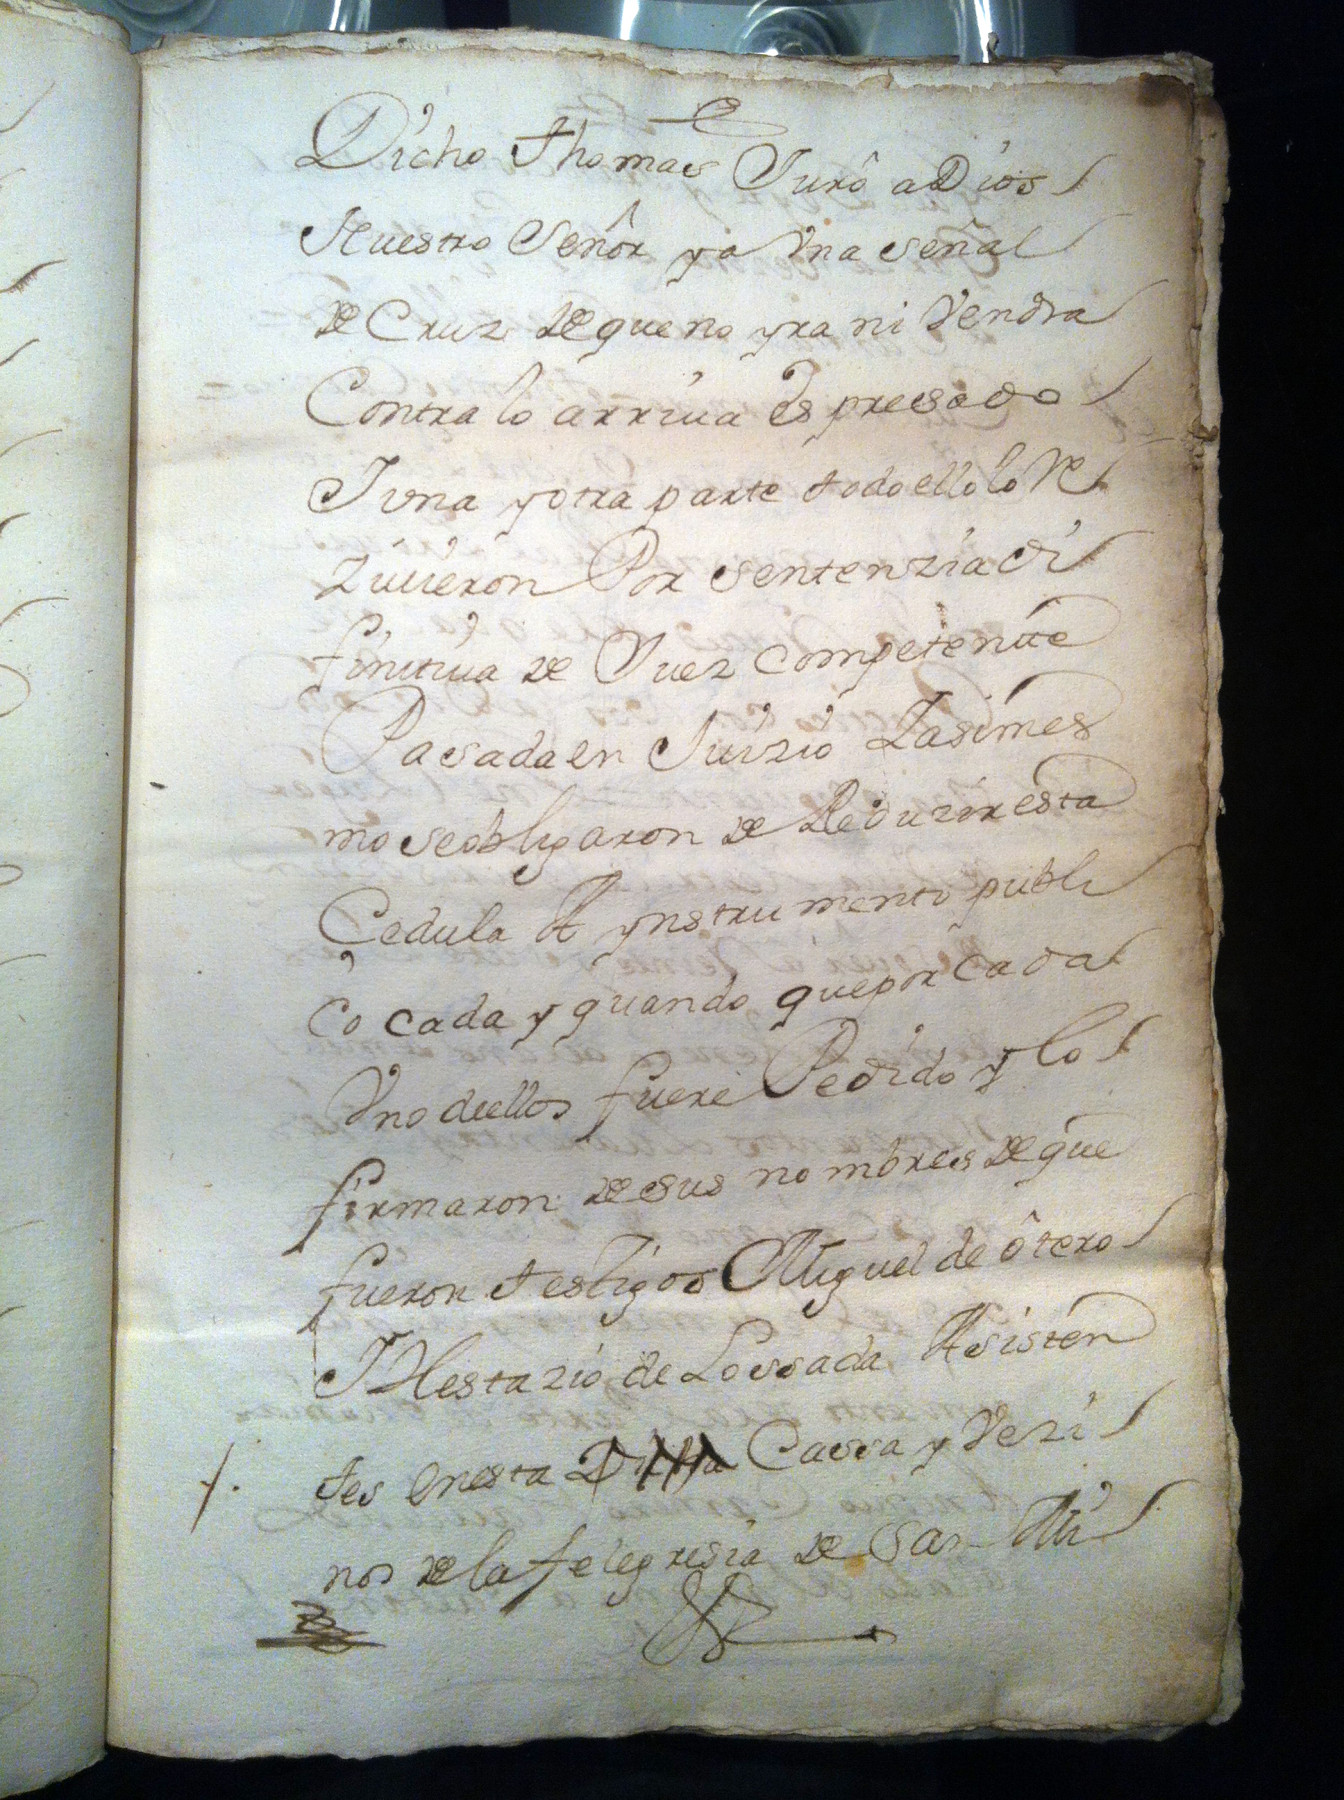 Dicho Thomas Jurô a Dios
Nuestro Señor y a Vna señal
de Cruz de que no yra ni Vendra
Contra lo arriua espresado
I vna y otra parte todo ello lo Re
ziuieron Por sentenzia di
finitiua de Juez competente
Pasada en Juizio Iasimes
mo se obligaron de Reduzir esta
Cedula A ynstrumento publi
co cada y quando que por cada
Vno dellos fuere Pedido y lo
firmaron de sus nombres de que
fueron testigos Miguel de ôtero
I Nestazio de Lossada Asisten
tes en esta Cassa y Vezi
nos de la felegresia de San Mi